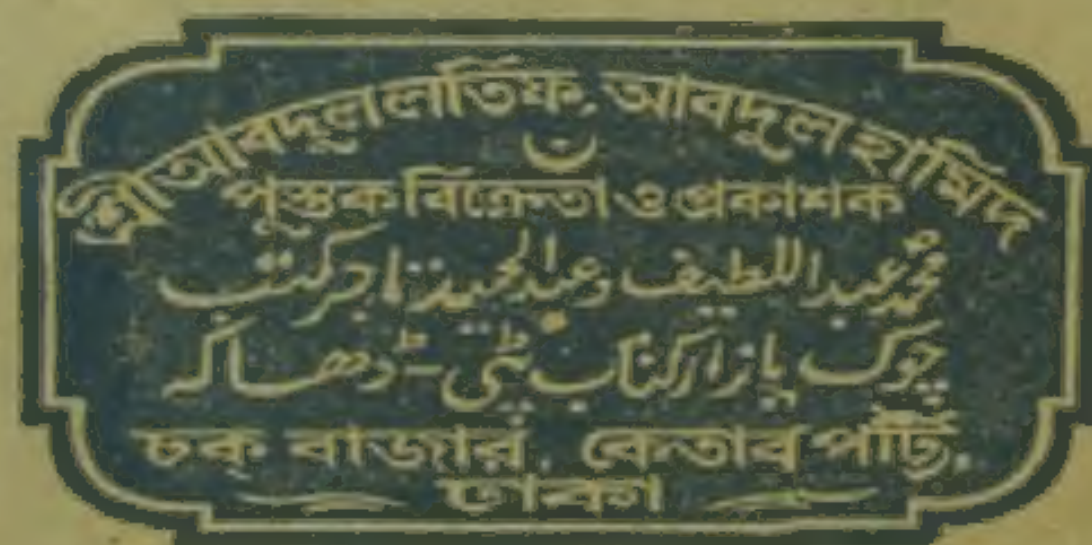 শ্রীআবদুল লতিফ, আবদুল হামিদ
পুস্তক বিক্রেতা ও প্রকাশক
محمد عبد اللطیف وعبد الحمید تاجر کتب
چوک بازار کتاب پٹی - ڈھاکہ
চক্ বাজার, কেতাব পট্টি,
ঢাকা